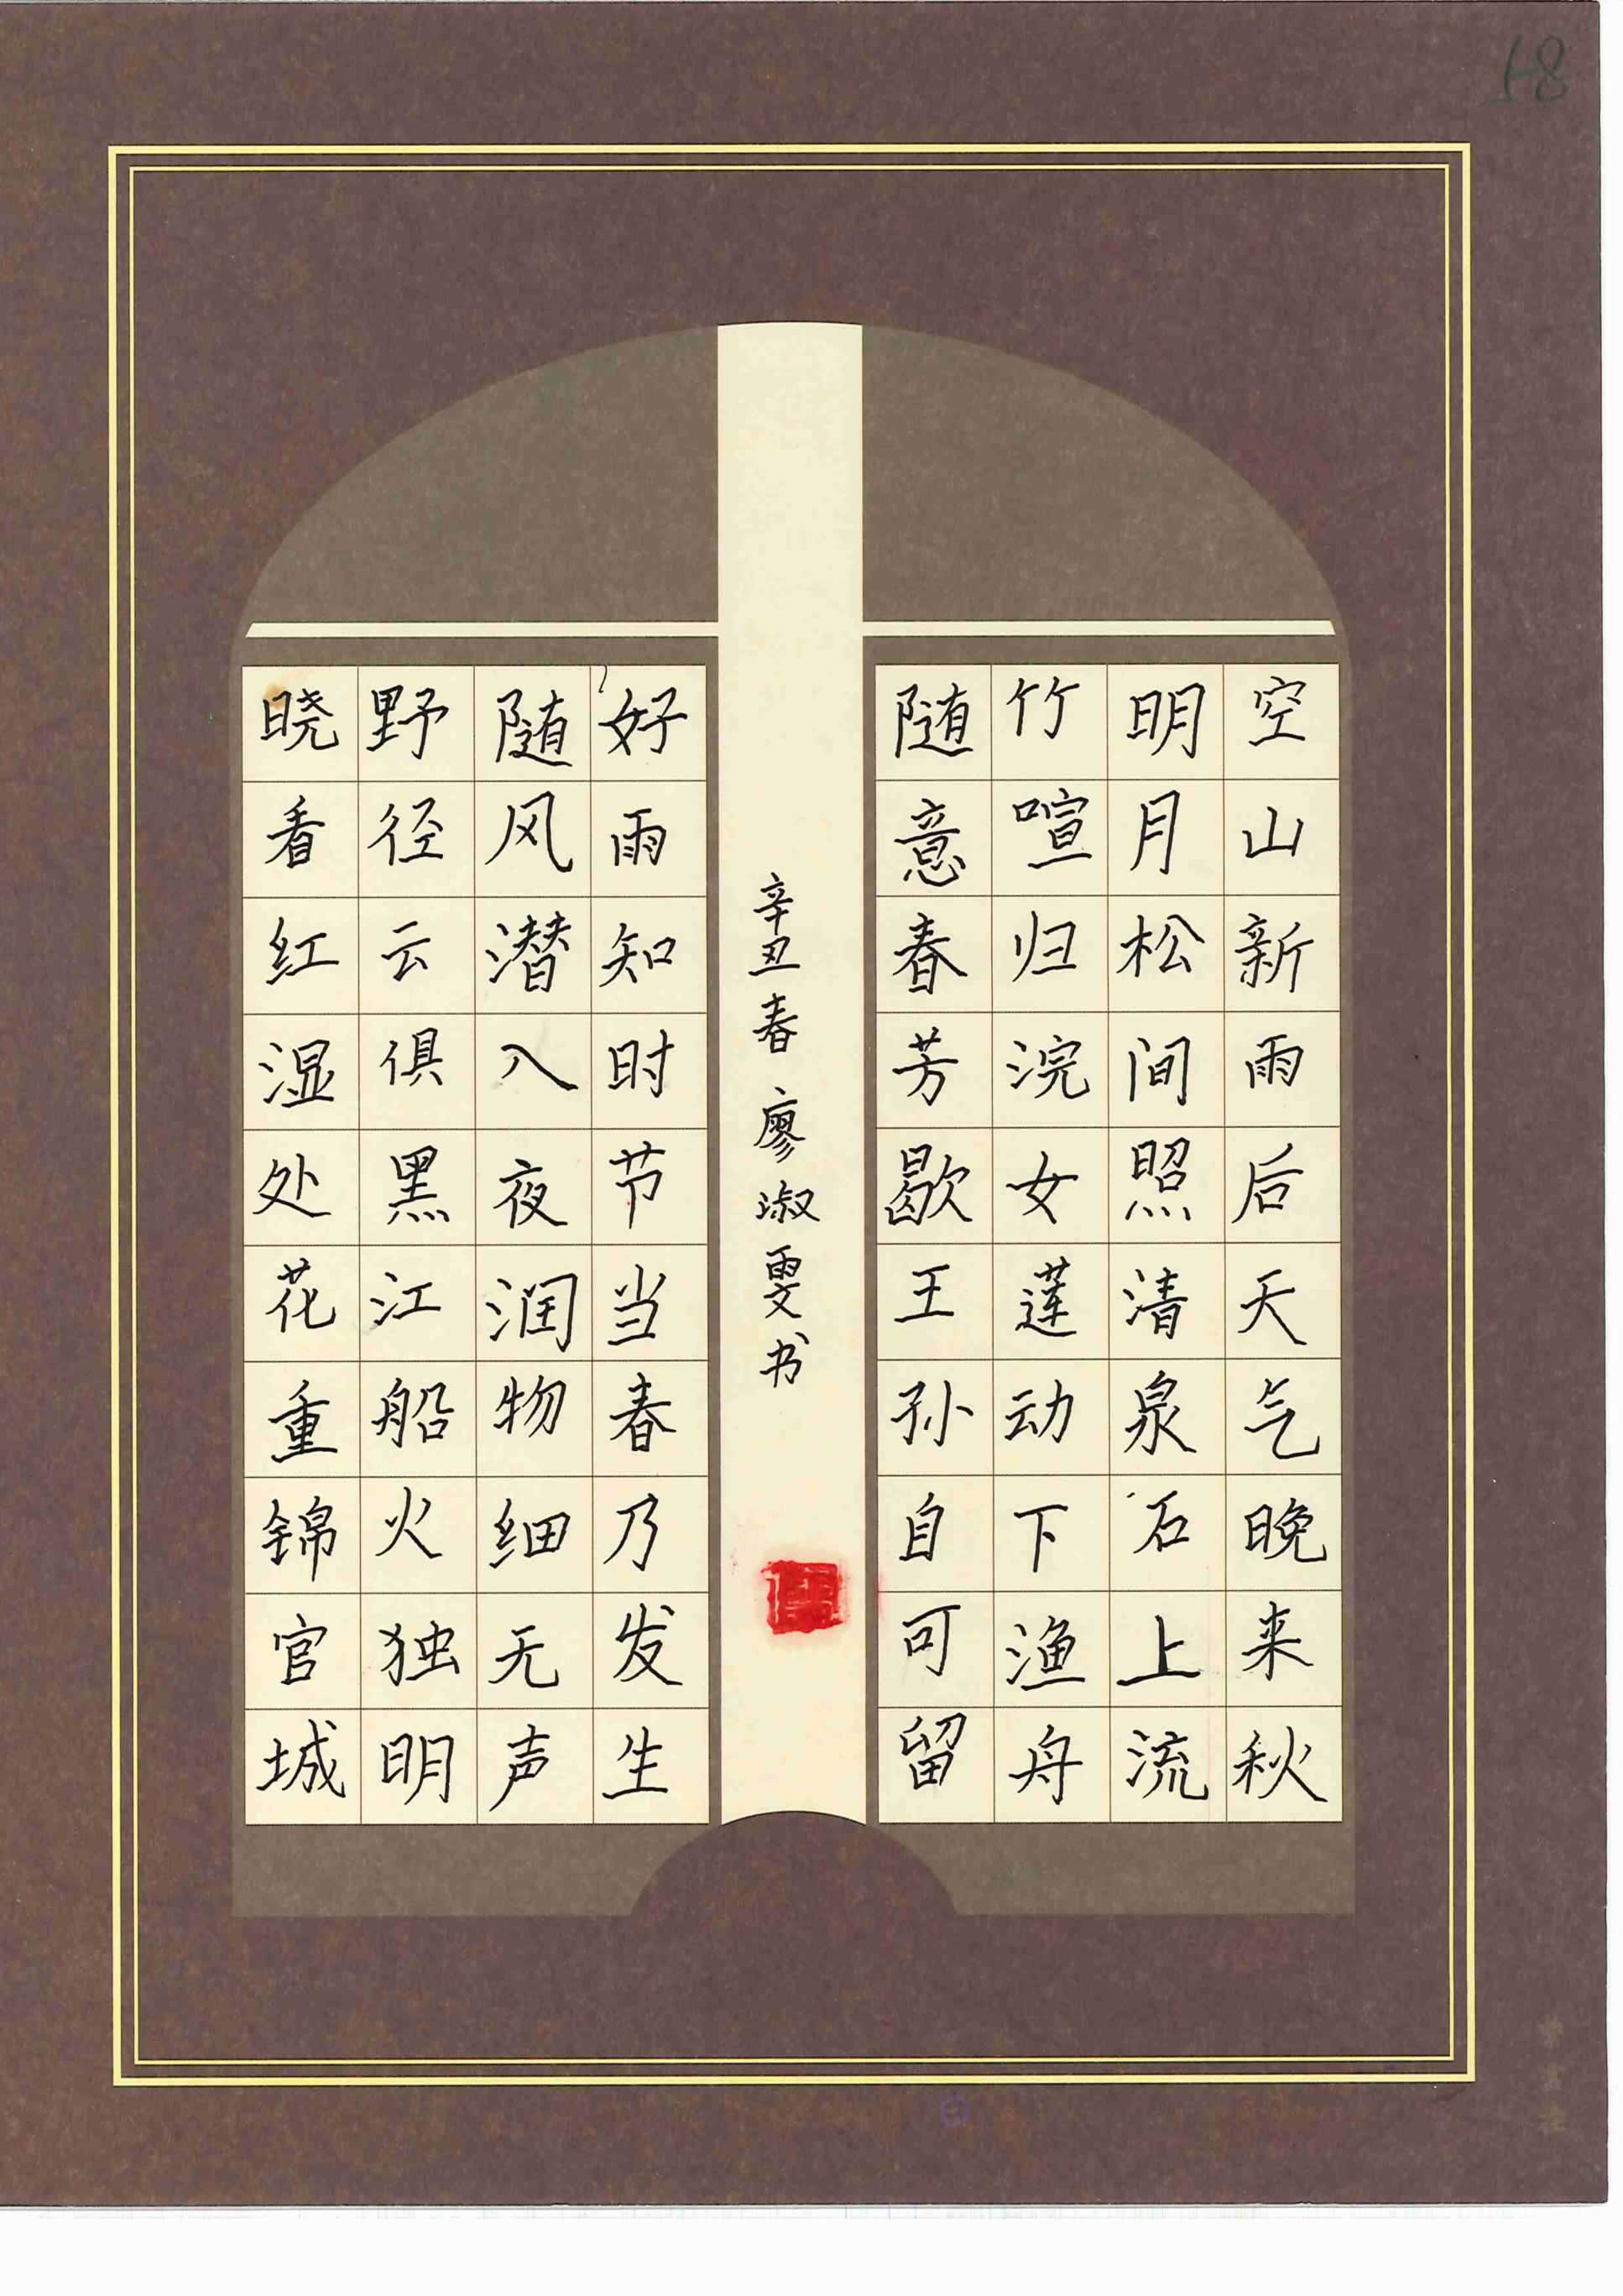 空山新雨后天气晚来秋
明月松间照清泉石上流
竹喧归浣女莲动下渔舟
随意春芳歇王孙自可留
辛丑春廖淑雯书
好雨知时节当春乃发生
随风潜入夜润物细无声
野径云俱黑江船火独明
晓看红湿处花重锦官城